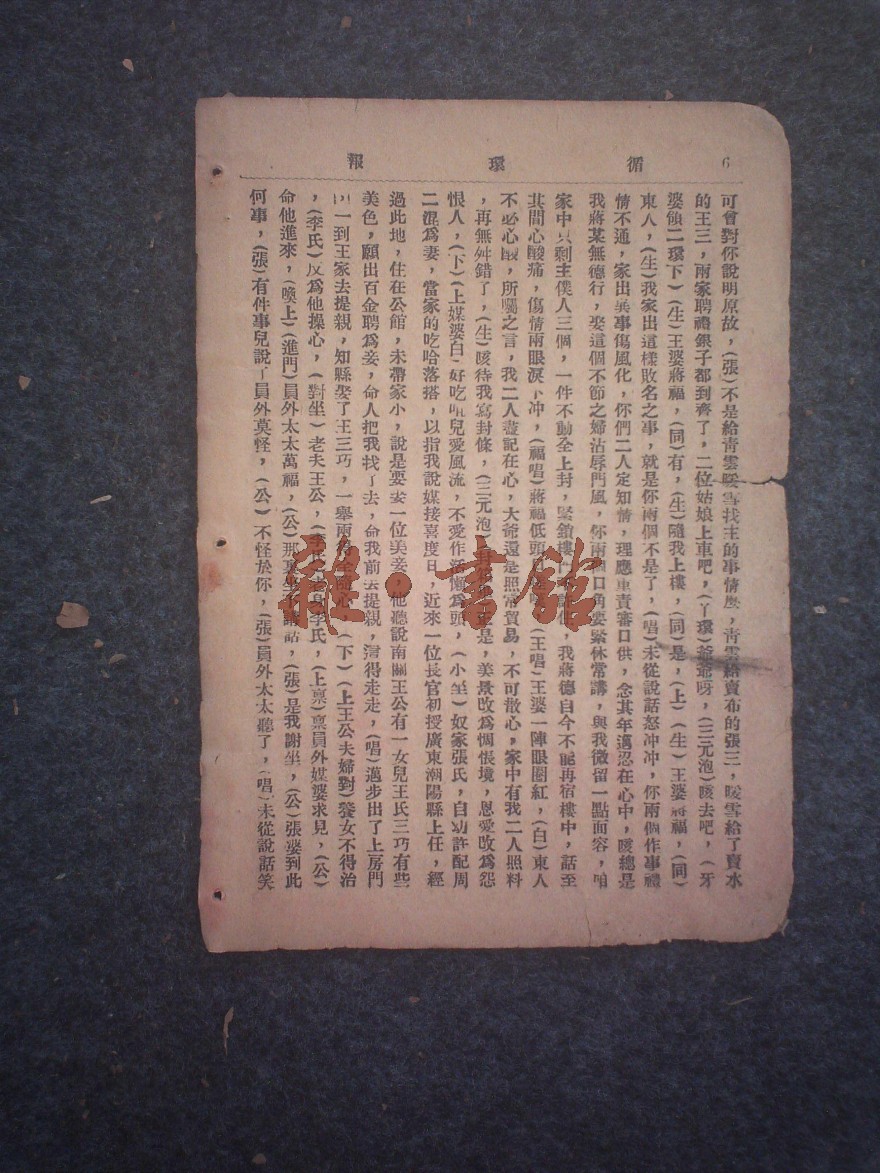 6 循環報
可曾對你說明原故，(張)不是給青雲暖雪找主的事情麽，青雲給賣布的張三，暖雪給了賣水
的王三，兩家聘禮銀子都到齊了，二位姑娘上車吧，(丫環)爺爺呀，(三元泡)咳去吧，(牙
婆領二環下)(生)王婆蔣福，(同)有，(生)隨我上樓，(同)是，(上)(生)王婆蔣福，(同)
東人，(生)我家出這樣敗名之事，就是你兩個不是了，(唱)未從說話怒冲冲，你兩個作事禮
情不通，家出事傷風化，你們二人定知情，理應重責審口供，念其年邁忍在心中，咳總是
我蔣某無德行，娶這個不節之婦沾辱門風，你兩個口角要緊休常講，與我微留一點面容，咱
家中只剩主僕人三個，一件不動全上封，緊鎖樓，我蔣德自今不能再宿樓中，話至
其間心酸痛，傷情兩眼淚下冲，(福唱)蔣福低頭(王唱)王婆一陣眼圈紅，(白)東人
不必心酸，所囑之言，我二人盡記在心，大爺還是照常貿易，不可散心，家中有我二人照料
，再無舛錯了，(生)咳待我寫封條，(三元泡)是，美景改為惆悵境，恩愛改為怨
恨人，(下)(上媒婆白)好吃兒愛風流，不愛作活懶為頭，(小坐)奴家張氏，自幼許配周
二混為妻，當家的吃哈落搭，以指我說媒接喜度日，近來一位長官初授廣東潮陽縣上任，經
過此地，住在公館，未帶家小，說是要娶一位美妾，他聽說南關王公有一女兒王氏三巧有些
美色，願出百金聘為妾，命人把我找了去，命我前去提親，得走走，(唱)邁步出了上房門
一到王家去提親，知縣娶了王三巧，一舉兩得全隨心，(下)(上王公夫婦對)養女不得治
，(李氏)反為他操心，(對坐)老夫王公，李氏，(上稟)稟員外媒婆求見，(公)
命他進來，(喚上)(進門)員外太太萬福，(公)那裏坐話，(張)是我謝坐，(公)張婆到此
何事，(張)有件事兒說了員外莫怪，(公)不怪於你，(張)員外太太聽了，(唱)未從說話笑
雜·書館